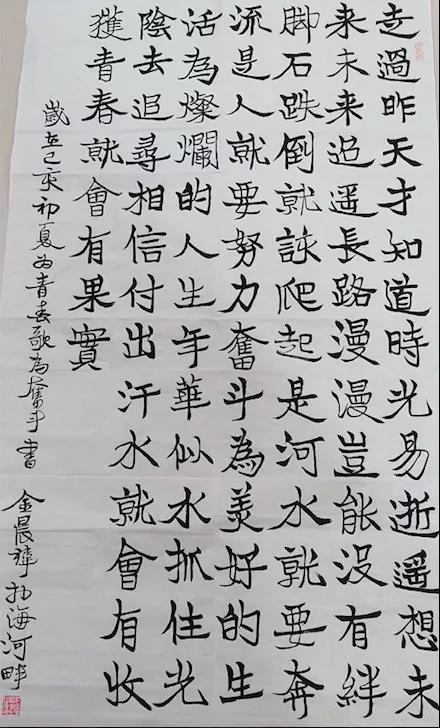 走過昨天才知道時光易逝遥想未
来未来迢遥長路漫漫豈能没有絆
脚石跌倒就該爬起是河水就要奔
流是人就要努力奮斗為美好的生
活為燦爛的人生年華似水抓住光
陰去追尋相信付出汗水就會有收
獲青春就會有果實
歲在己亥初夏为青春歌为奮斗書 金晨禕於海河畔